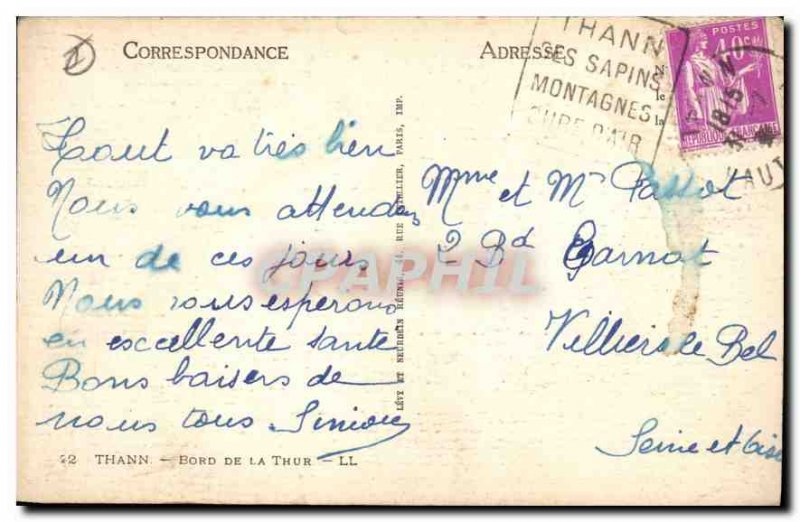 CORRESPONDANCE
ADRESSE
THANN
SES SAPINS
MONTAGNES
CURE D'AIR
POSTES
40c
RÉPUBLIQUE FRANÇAISE
18 15
HAUT
Tout va très bien
Nous vous attendons
un de ces jours
Nous vous esperons
en excellente sante
Bons baisers de
nous tous Simon
Mme et Mr
2 Bd Carnot
Villiers le Bel
Seine et Oise
LÉVY ET NEURDEIN RÉUNIS, 44, RUE LETELLIER, PARIS, IMP.
CPAPHIL
22 THANN - BORD DE LA THUR - LL